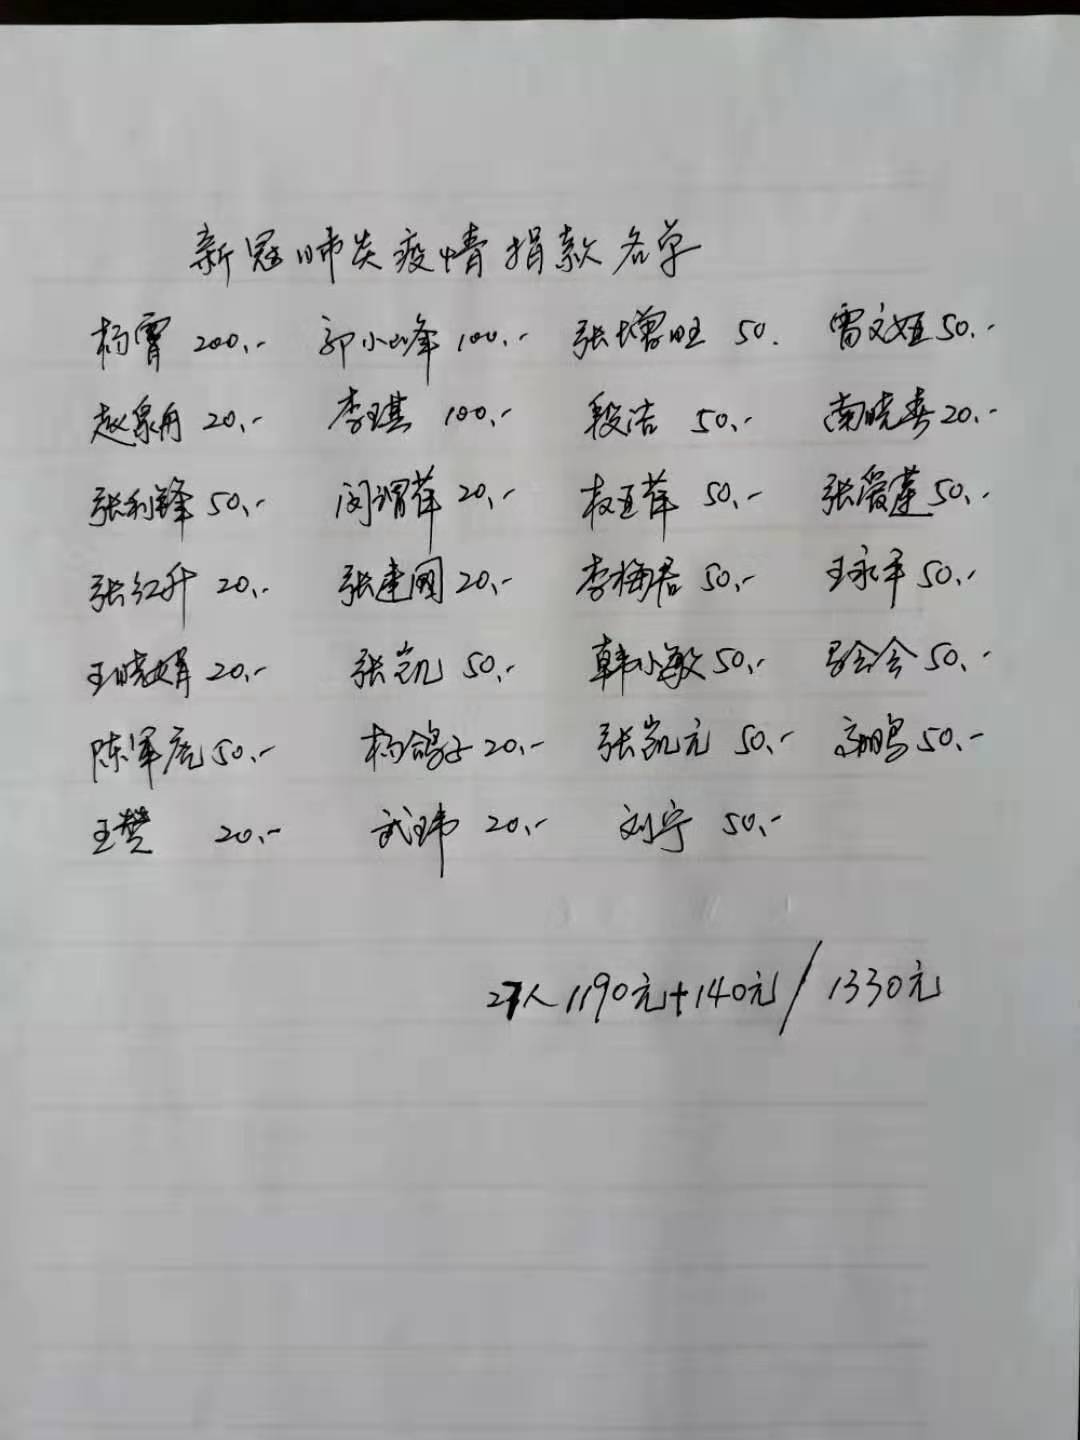 新冠肺炎疫情捐款名单
杨霄 200.- 郭小峰 100.- 张增旺 50. 雷文姬 50.-
赵泉舟 20.- 李琪 100.- 段洁 50.- 南晓春 20.-
张利锋 50.- 闵谓萍 20.- 权亚萍 50.- 张爱莲 50.-
张红升 20.- 张建国 20.- 李梅君 50.- 王永平 50.-
王晓娟 20.- 张凯 50.- 韩小敏 50.- 会会 50.-
陈军虎 50.- 杨鸽子 20.- 张凯元 50.- 高鹏 50.-
王赞 20.- 武玮 20.- 刘宁 50.-
27人 1190元+140元/1330元